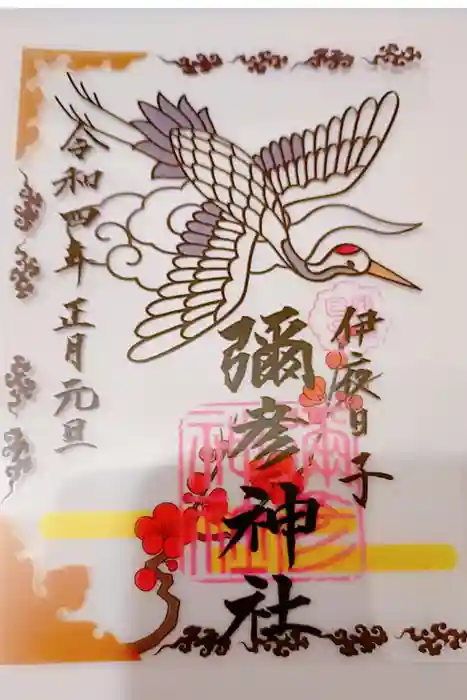 伊夜日子
彌彦神社
令和四年 正月元旦